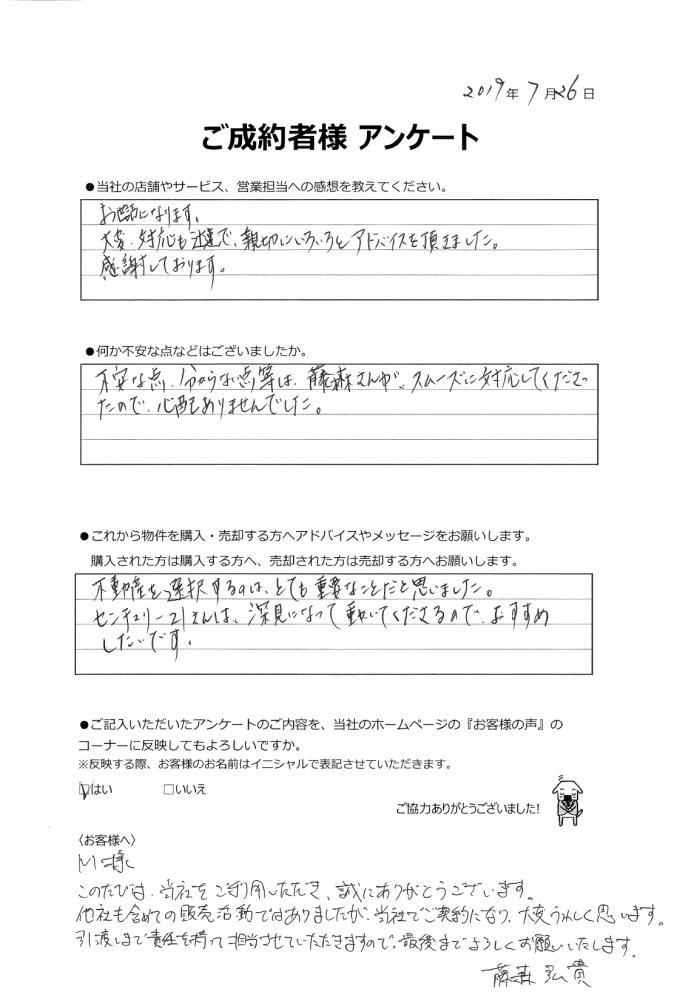 2019年7月26日
ご成約者様 アンケート
●当社の店舗やサービス、営業担当への感想を教えてください。
お世話になります。
大変、対応も迅速で、親切にいろいろとアドバイスを頂きました。
感謝しております。
●何か不安な点などはございましたか。
不安な点、分からない点等は、藤森さんが、スムーズに対応してくださっ
たので、心配もありませんでした。
●これから物件を購入・売却する方へアドバイスやメッセージをお願いします。
購入された方は購入する方へ、売却された方は売却する方へお願いします。
不動産を選択するのは、とても重要なことだと思いました。
センチュリー21さんは、深見になって動いてくださるので、おすすめ
したいです。
●ご記入いただいたアンケートのご内容を、当社のホームページの『お客様の声』の
コーナーに反映してもよろしいですか。
※反映する際、お客様のお名前はイニシャルで表記させていただきます。
☑はい □いいえ
ご協力ありがとうございました!
〈お客様へ〉
様
このたびは、当社をご利用いただき、誠にありがとうございます。
他社も含めての販売活動ではありましたが、当社でご契約になり、大変うれしく思います。
引渡しまで責任を持って担当させていただきますので、最後までよろしくお願いいたします。
藤森 弘貴